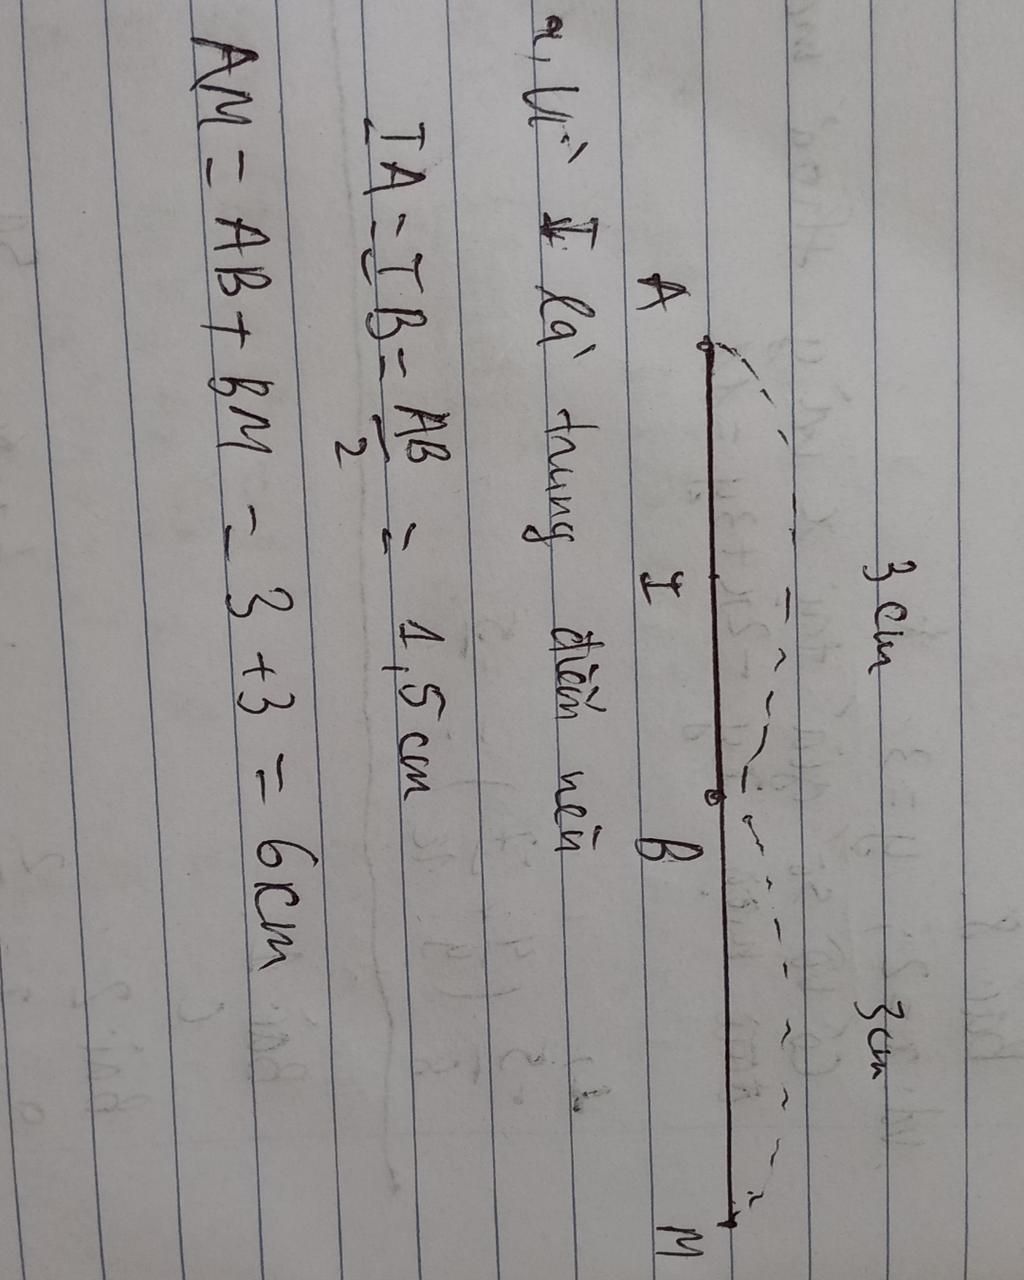 3 cm 3 cm
A I B M
a, Vì I là trung điểm nên
IA = IB = AB/2 = 1,5 cm
AM = AB + BM = 3 + 3 = 6 cm